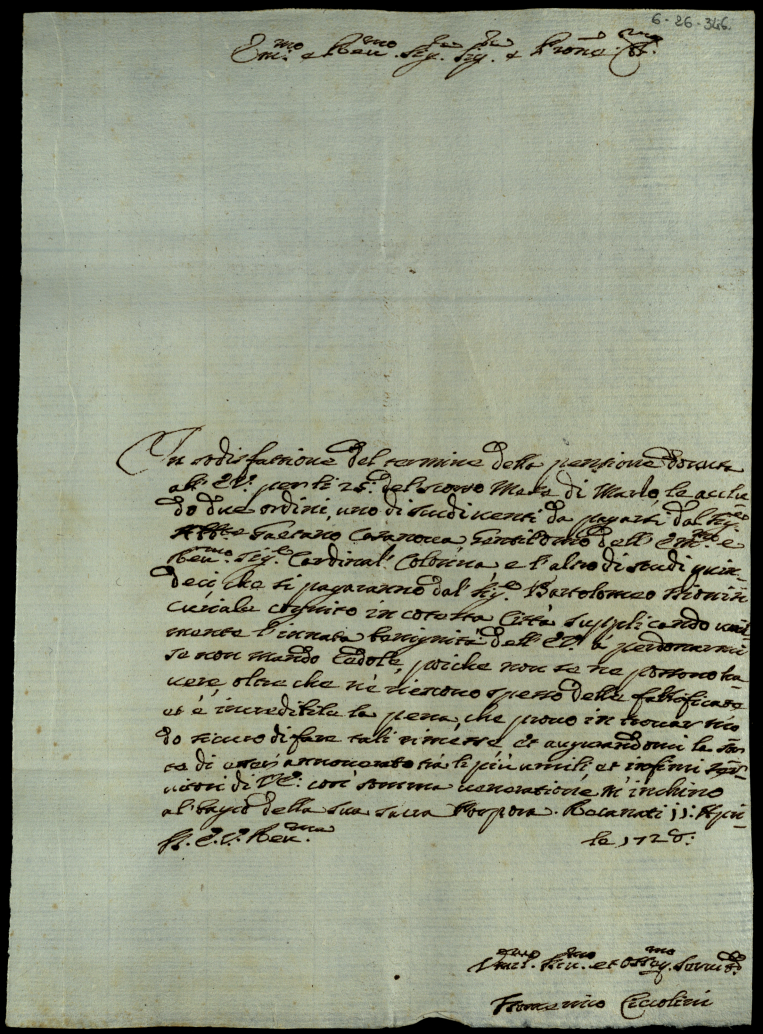 6-26-346.
Em.mo e Rev.mo Sig. Sig. e Prone
In sodisfattione del termine della pensione dovuta
all' E.V. per li 25: del scorso Mese di Marzo, le acclu-
do due ordini, uno di scudi venti da pagarsi dal Sig.
Abbe Gaetano Casanova gentilomo dell' Em.mo e
Rev.mo Sig.e Cardinal' Colonna, e l'altro di scudi quin-
deci che si pagaranno dal Sig.e Bartolomeo
curiale cognito in cotesta Città supplicando umil-
mente l'innata benignità dell' E.V. à perdonarmi
se non mando Cedole, poiche non se ne possono ha-
vere, oltre che vi è spesso delle falsificate
et è incredibile la pena, che provo in trovar mo-
do sicuro di fare tali rimesse, et augurandomi la sor-
te di esser annoverato trà li più umili, et infimi ser-
vitori di V.E. con somma veneratione, m'inchino
al bagio della sua sacra Porpora. Recanati 11: Apri-
le 1728:
A. E. V. Rev.ma
Um.mo Dev.mo et Oss.mo Serv.re
Ciccolini